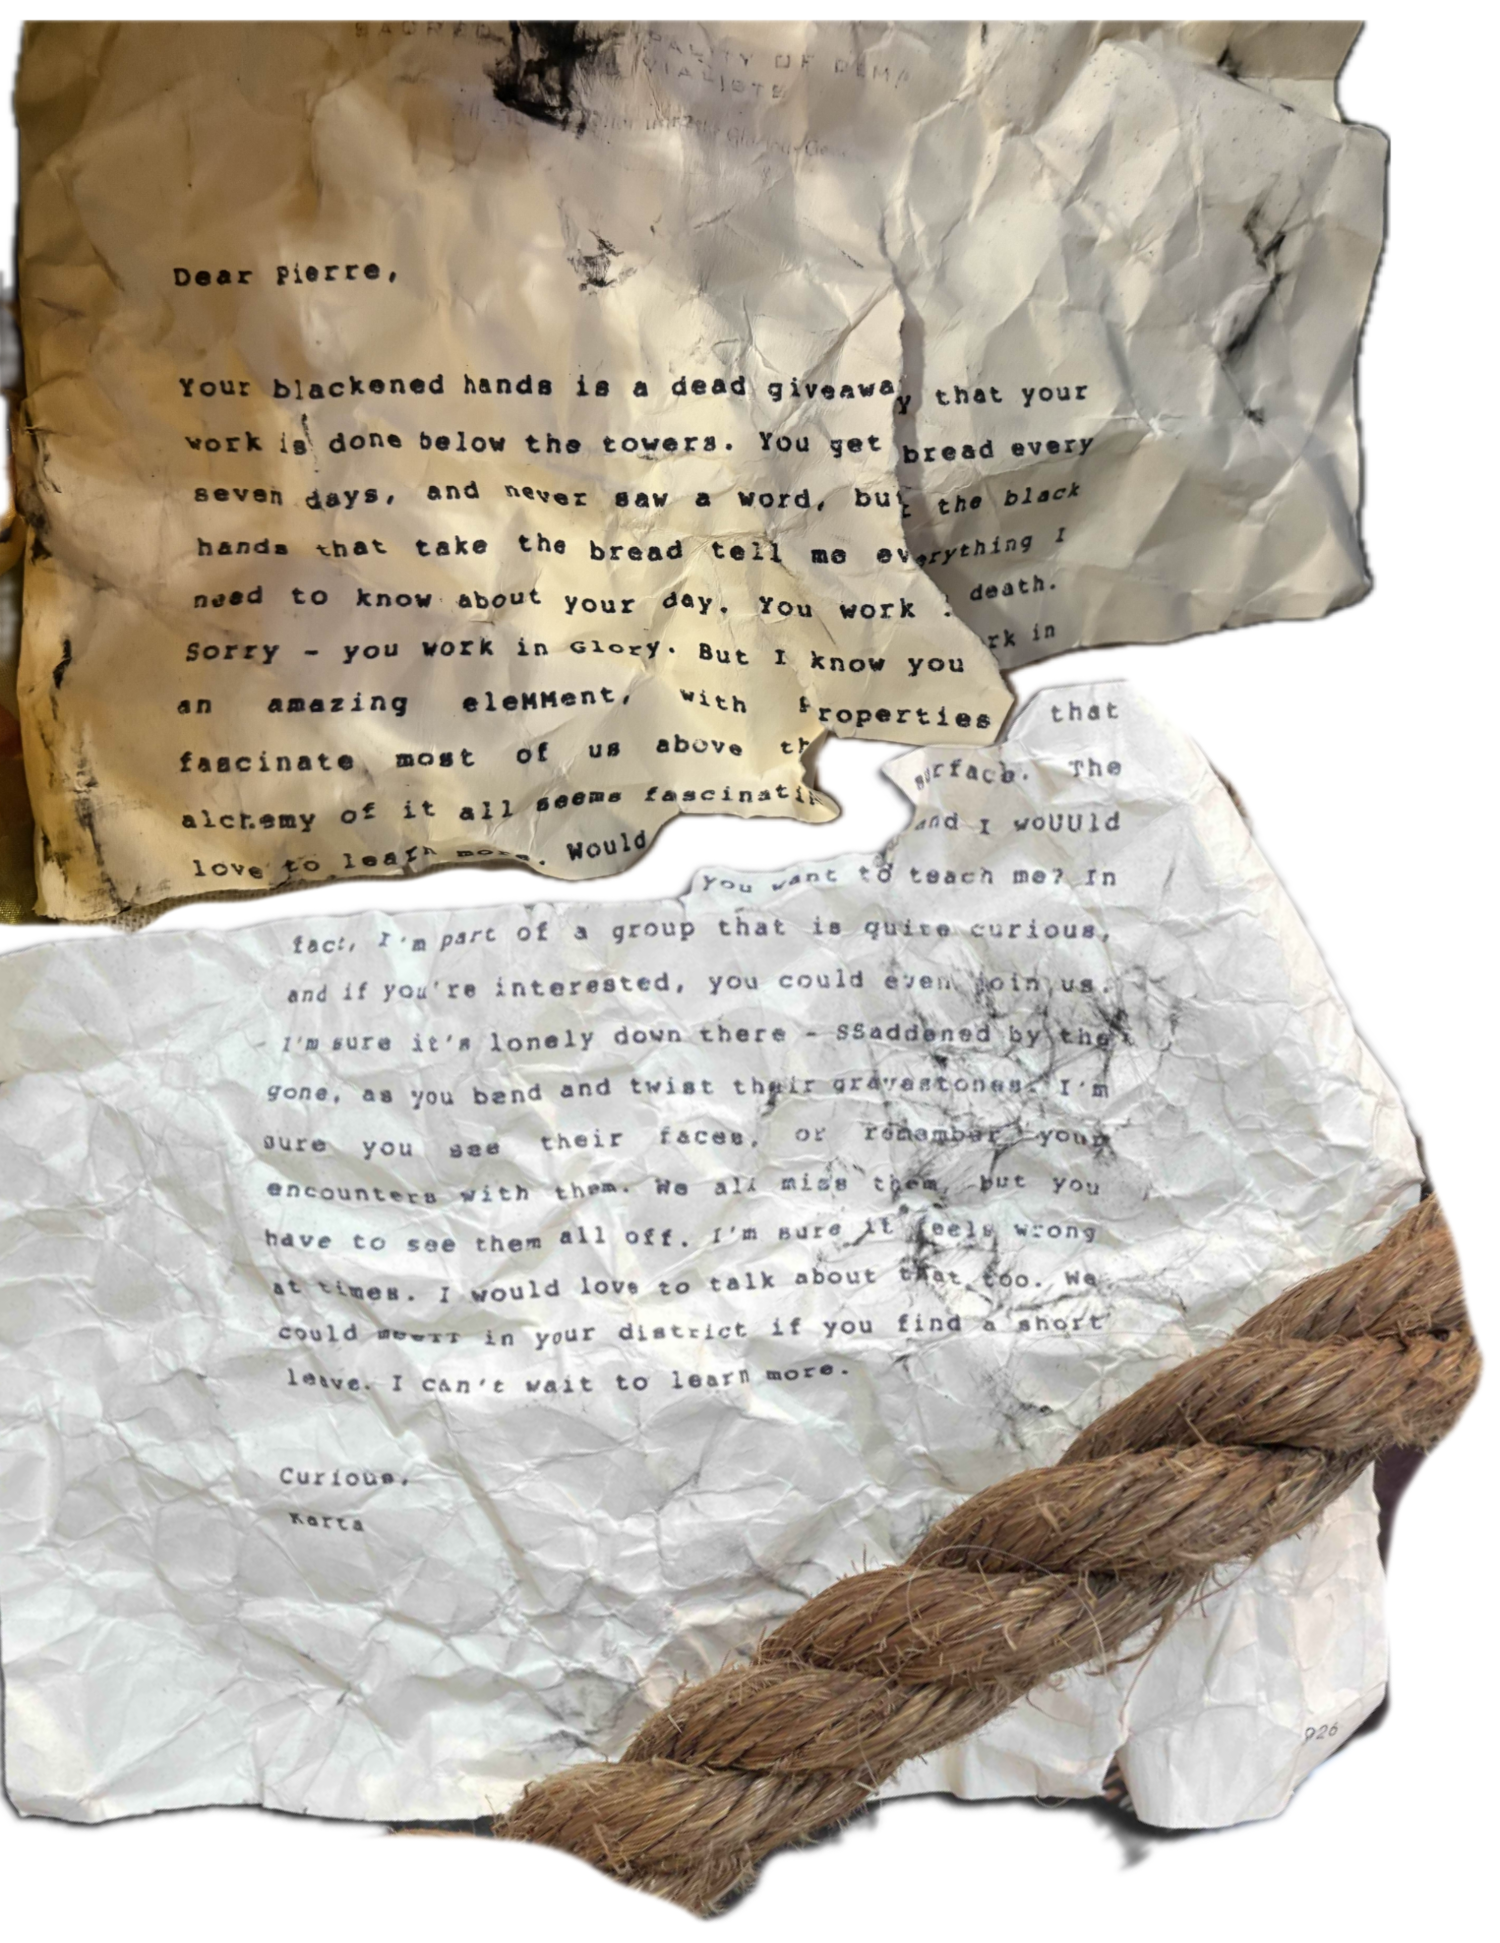 SACRED PALITY OF DEMA
Dear Pierre,
Your blackened hands is a dead giveaway that your
work is done below the towers. You get bread every
seven days, and never saw a word, but the black
hands that take the bread tell me everything I
need to know about your day. You work death.
Sorry – you work in Glory. But I know you rk in
an amazing eleMMent, with properties that
fascinate most of us above th urface. The
alchemy of it all seems fascinati and I woUUld
love to learn more. Would you want to teach me? In
fact, I'm part of a group that is quite curious,
and if you're interested, you could even join us.
I'm sure it's lonely down there – SSaddened by the
gone, as you bend and twist their gravestones. I'm
sure you see their faces, or remember your
encounters with them. We all miss them, but you
have to see them all off. I'm sure it feels wrong
at times. I would love to talk about that too. We
could in your district if you find a short
leave. I can't wait to learn more.
Curious,
Karta
926